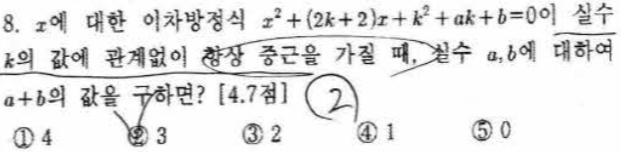 8. x에 대한 이차방정식 x²+(2k+2)x+k²+ak+b=0이 실수
k의 값에 관계없이 항상 중근을 가질 때, 실수 a,b에 대하여
a+b의 값을 구하면? [4.7점] 2
① 4 ② 3 ③ 2 ④ 1 ⑤ 0